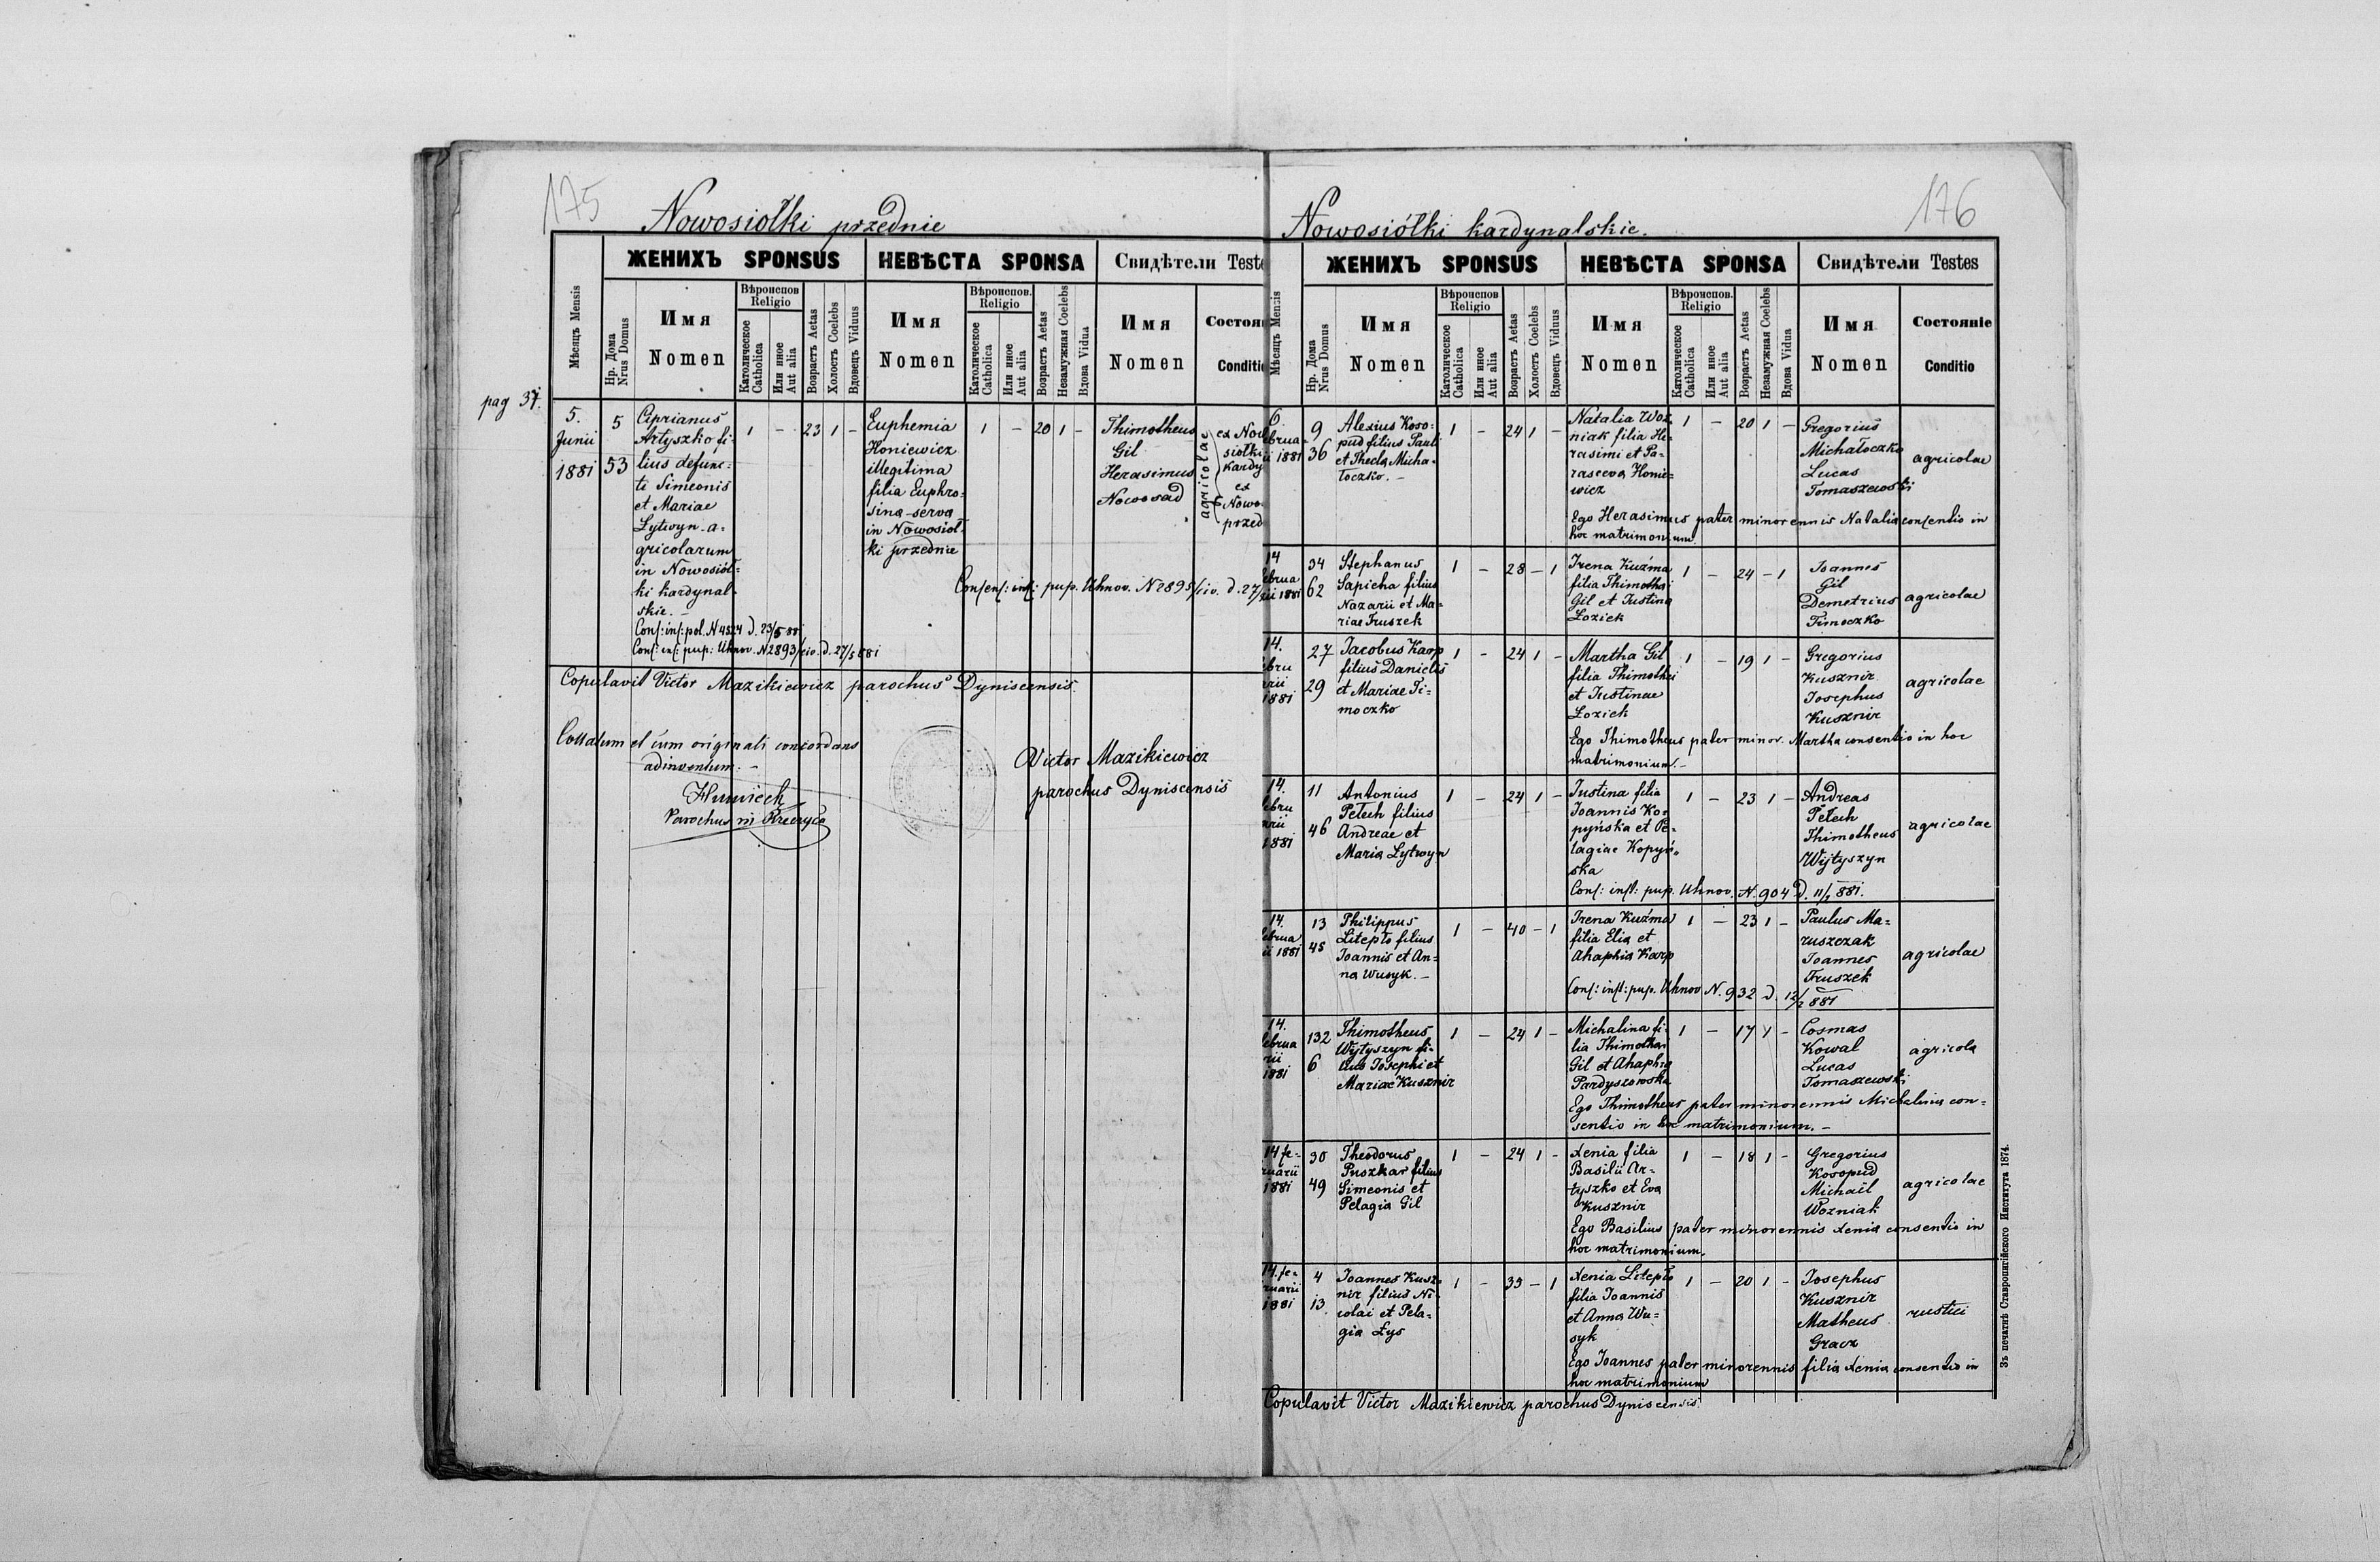 175
Nowosiołki przednie
pag 37.
Мѣсяцъ Mensis
ЖЕНИХЪ SPONSUS
НЕВѢСТА SPONSA
Свидѣтели Teste
Нр. Дома
Nrus Domus
Имя
Nomen
Вѣроиспов
Religio
Католическое
Catholica
Или иное
Aut alia
Возрастъ Aetas
Холостъ Coelebs
Вдовецъ Viduus
Имя
Nomen
Вѣроиспов.
Religio
Католическое
Catholica
Или иное
Aut alia
Возрастъ Aetas
Незамужная Coelebs
Вдова Vidua
Имя
Nomen
Состоян
Conditio
5.
Junii
1881
5
53
Ciprianus
Artyszko fi-
lius defunc-
ti Simeonis
et Mariae
Łytwyn a-
gricolarum
in Nowosiół-
ki kardynal-
skie. -
Conf: inf: pol. N 4524 d. 23/5 88
Conf: inf: pup: Uhnov. N 2893/civ. d. 27/5 881
1 - 23 1 -
Euphemia
Honiewicz
illegitima
filia Euphro-
sina serva
in Nowosioł-
ki przednie
1 - 20 1 -
Consens: inst: pup. Uhnov. N 2895/civ. d. 27/
Thimotheus
Gil
Herasimus
Nowosad
agricolae
ex Now
siółki
kardy
ex
Nowo
przed
Copulavit Victor Mazikiewicz parochus Dyniscensis.
Collatum et cum originali concordans
adinventum. -
Parochus in
Victor Mazikiewicz
parochus Dyniscensis
176
Nowosiółki kardynalskie.
Мѣсяцъ Mensis
ЖЕНИХЪ SPONSUS
НЕВѢСТА SPONSA
Свидѣтели Testes
Нр. Дома
Nrus Domus
Имя
Nomen
Вѣроиспов
Religio
Католическое
Catholica
Или иное
Aut alia
Возрастъ Aetas
Холостъ Coelebs
Вдовецъ Viduus
Имя
Nomen
Вѣроиспов.
Religio
Католическое
Catholica
Или иное
Aut alia
Возрастъ Aetas
Незамужная Coelebs
Вдова Vidua
Имя
Nomen
Состояніе
Conditio
6
ebrua-
ii 1881
9
36
Alexius Koso-
pud filius Pauli
et Thecla Micha-
łoczko. -
1 - 24 1 -
Natalia Woz-
niak filia He-
rasimi et Pa-
rasceva Honie-
wicz
1 - 20 1 -
Gregorius
Michałoczko
Lucas
Tomaszewski
agricolae
Ego Herasimus pater minorennis Natalia consentio in
hoc matrimonium.
14
ebrua
rii 1881
34
62
Stephanus
Sapieha filius
Nazarii et Ma-
riae Truszek
1 - 28 - 1
Irena Kuźma
filia Thimothei
Gil et Justina
Łoziek
1 - 24 - 1
Joannes
Gil
Demetrius
Timoczko
agricolae
14.
ebru
arii
1881
27
29
Jacobus Karp
filius Danielis
et Mariae Ti-
moczko
1 - 24 1 -
Martha Gil
filia Thimothei
et Justinae
Łoziek
1 - 19 1 -
Gregorius
Kusznir
Josephus
Kusznir
agricolae
Ego Thimotheus pater minor. Martha consentio in hoc
matrimonium. -
14.
ebru
arii
1881
11
46
Antonius
Pełech filius
Andreae et
Maria Łytwyn
1 - 24 1 -
Justina filia
Joannis Ko-
pyńska et Pe-
lagiae Kopyń-
ska
1 - 23 1 -
Andreas
Pełech
Thimotheus
Wijtyszyn
agricolae
Conf: inst: pup. Uhnov. N. 904 d. 11/2 881.
14.
ebrua
ii 1881
13
45
Philippus
Litepło filius
Joannis et An-
na Wusyk. -
1 - 40 - 1
Irena Kuźma
filia Elia et
Ahaphia Karp
1 - 23 1 -
Paulus Ma-
ruszczak
Joannes
Truszek
agricolae
Conf: inst: pup. Uhnov N. 932 d. 12/2 881
14.
ebrua
rii
1881
132
6
Thimotheus
Wijtyszyn fi-
lius Josephi et
Mariae Kusznir
1 - 24 1 -
Michalina fi-
lia Thimothei
Gil et Ahaphia
Pardyszowska
1 - 17 1 -
Cosmas
Kowal
Lucas
Tomaszewski
agricola
Ego Thimotheus pater minorennis Michalina con-
sentio in hoc matrimonium. -
14 fe-
ruarii
1881
30
49
Theodorus
Puszkar filius
Simeonis et
Pelagia Gil
1 - 24 1 -
Xenia filia
Basilii Ar-
tyszko et Eva
Kusznir
1 - 18 1 -
Gregorius
Kosopud
Michaël
Wozniak
agricolae
Ego Basilius pater minorennis Xenia consentio in
hoc matrimonium.
14. fe-
ruarii
1881
4
13
Joannes Kusz-
nir filius Ni-
colai et Pela-
gia Łys
1 - 39 - 1
Xenia Litepło
filia Joannis
et Anna Wu-
syk
1 - 20 1 -
Josephus
Kusznir
Matheus
Gracz
rustici
Ego Joannes pater minorennis filia Xenia consentio in
hoc matrimonium
Copulavit Victor Mazikiewicz parochus Dyniscensis.
Зъ печатнѣ Ставропигійского Института 1874.